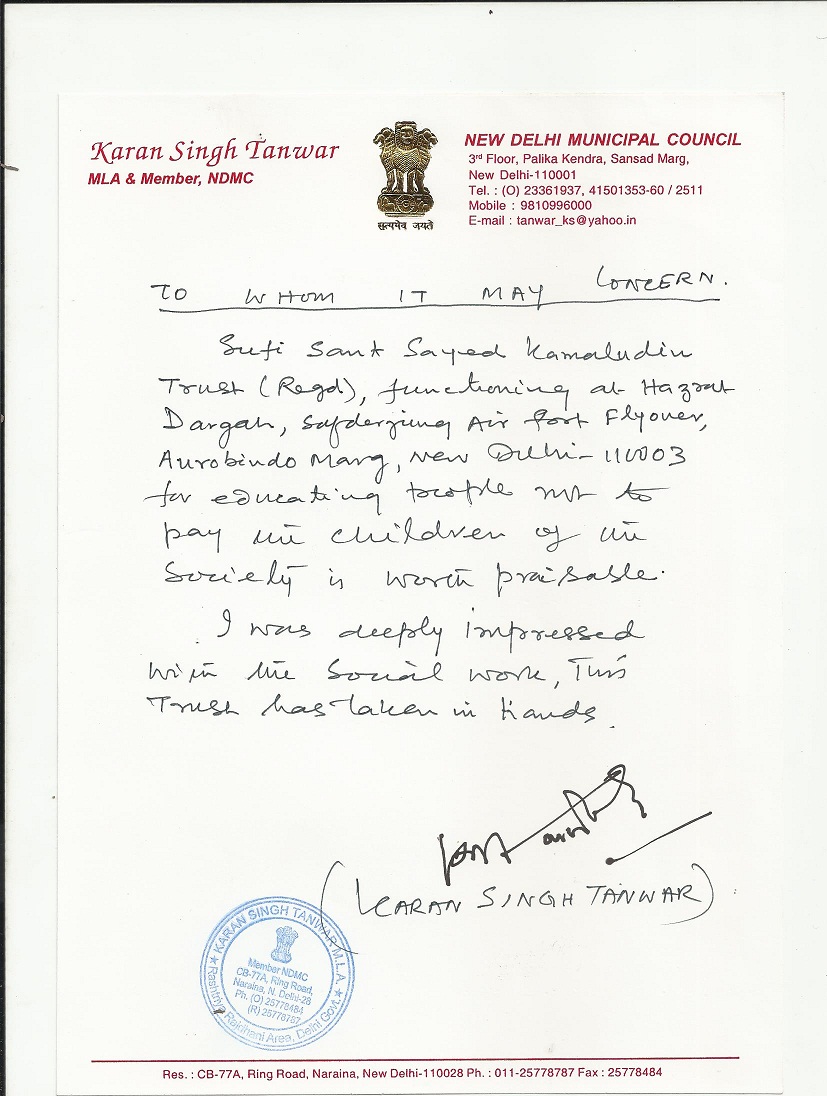 Karan Singh Tanwar
MLA & Member, NDMC
सत्यमेव जयते
NEW DELHI MUNICIPAL COUNCIL
3rd Floor, Palika Kendra, Sansad Marg,
New Delhi-110001
Tel. : (O) 23361937, 41501353-60 / 2511
Mobile : 9810996000
E-mail : tanwar_ks@yahoo.in
TO WHOM IT MAY CONCERN.
Sufi Sant Sayed Kamaludin
Trust (Regd), functioning at Hazrat
Dargah, Safderjung Air Port Flyover,
Aurobindo Marg, New Delhi-110003
for educating people not to
pay the children of the
Society is worth praisable.
I was deeply impressed
with the Social work, This
Trust has taken in hands.
(KARAN SINGH TANWAR)
KARAN SINGH TANWAR M.L.A.
Member NDMC
CB-77A, Ring Road,
Naraina, N. Delhi-28
Ph. (O) 25778484
(R) 25778787
Rashtriya Rajdhani Area, Delhi Govt.
Res. : CB-77A, Ring Road, Naraina, New Delhi-110028 Ph. : 011-25778787 Fax : 25778484